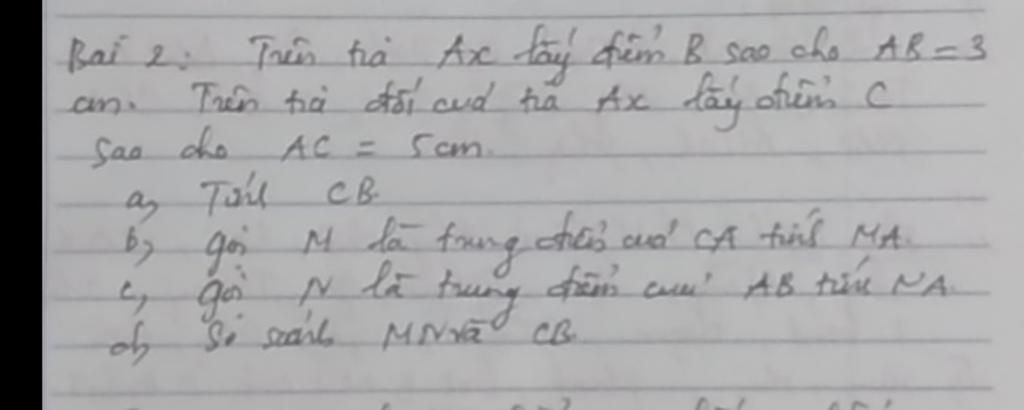 Bài 2: Trên tia Ax lấy điểm B sao cho AB = 3
cm. Trên tia đối của tia Ax lấy điểm C
Sao cho AC = 5cm.
a, Tính CB.
b, gọi M là trung điểm của CA tính MA.
c, gọi N là trung điểm của AB tính NA.
d, So sánh MN và CB.